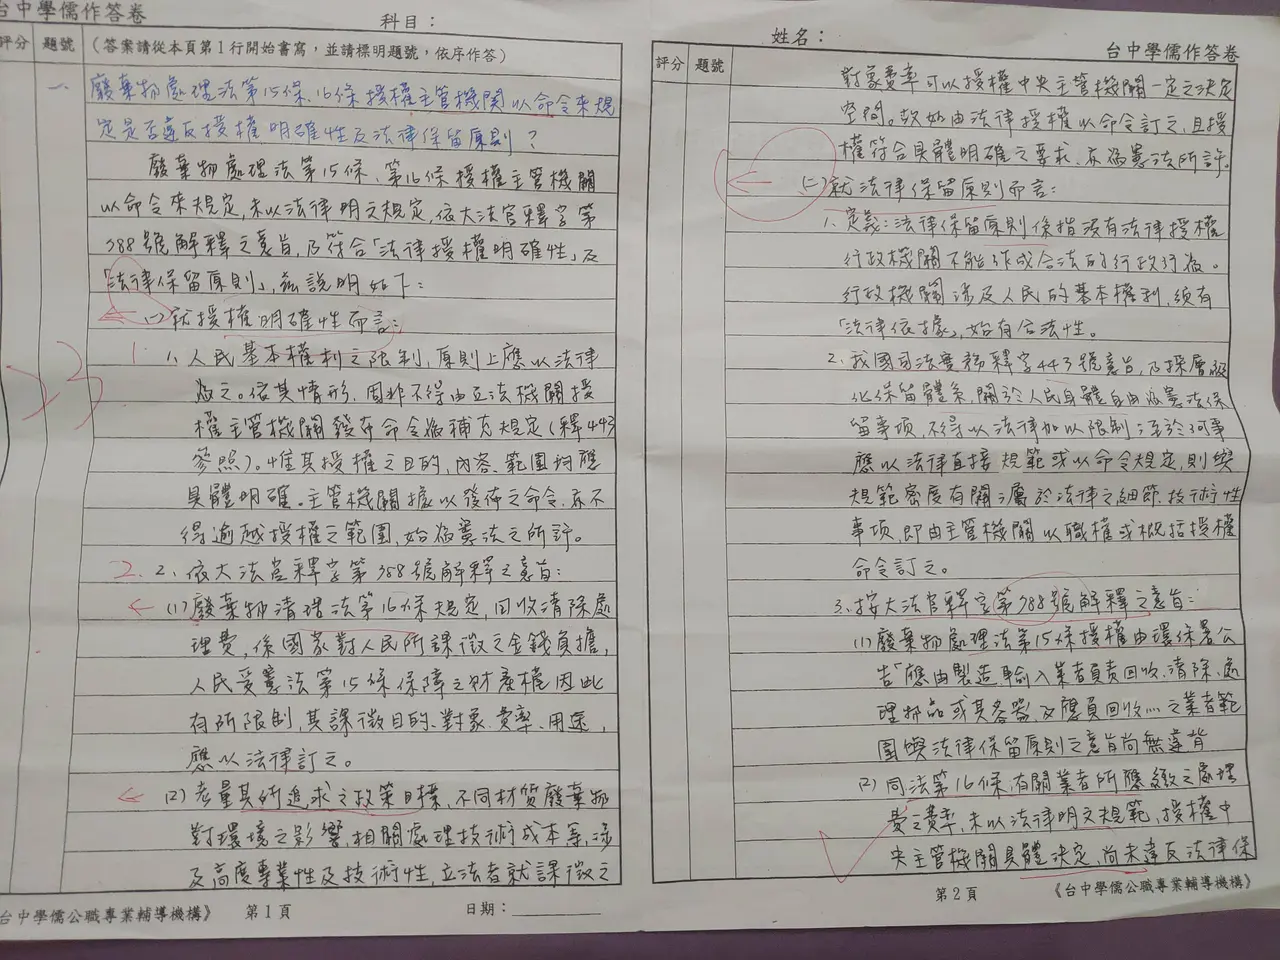 台中學儒作答卷
科目：
評分 題號 （答案請從本頁第1行開始書寫，並請標明題號，依序作答）
一、 廢棄物處理法第15條、16條授權主管機關以命令來規
定是否違反授權明確性及法律保留原則？
廢棄物處理法第15條、第16條授權主管機關
以命令來規定，未以法律明文規定，依大法官釋字第
788號解釋之意旨，乃符合「法律授權明確性」及
「法律保留原則」，茲說明如下：
(一)就授權明確性而言：
1. 人民基本權利之限制，原則上應以法律
為之。依其情形，固非不得由立法機關授
權主管機關發布命令為補充規定（釋443
參照）。惟其授權之目的、內容、範圍均應
具體明確。主管機關據以發佈之命令，亦不
得逾越授權之範圍，始為憲法之所許。
2. 依大法官釋字第788號解釋之意旨：
(1)廢棄物清理法第16條規定，回收清除處
理費，係國家對人民所課徵之金錢負擔，
人民受憲法第15條保障之財產權因此
有所限制，其課徵目的、對象、費率、用途，
應以法律訂之。
(2)考量其所追求之政策目標、不同材質廢棄物
對環境之影響，相關處理技術成本等，涉
及高度專業性及技術性，立法者就課徵之
台中學儒公職專業輔導機構》 第1頁 日期：
姓名：
台中學儒作答卷
評分 題號
對象費率可以授權中央主管機關一定之決定
空間。故如由法律授權以命令訂之，且授
權符合具體明確之要求，亦為憲法所許。
(二)就法律保留原則而言：
1. 定義：法律保留原則係指沒有法律授權
行政機關不能作成合法的行政行為。
行政機關涉及人民的基本權利，須有
「法律依據」，始有合法性。
2. 我國司法實務釋字443號意旨，乃採層級
化保留體系，關於人民身體自由為憲法保
留事項，不得以法律加以限制；至於何事
應以法律直接規範或以命令規定，則與
規範密度有關；屬於法律之細節、技術性
事項，即由主管機關以職權或概括授權
命令訂之。
3. 按大法官釋字第788號解釋之意旨：
(1)廢棄物處理法第15條授權由環保署公
告「應由製造輸入業者負責回收、清除、處
理物品或其容器，及應負回收…之業者範
圍與法律保留原則之意旨尚無違背
(2)同法第16條，有關業者所應繳之處理
費之費率，未以法律明文規範，授權中
央主管機關具體決定，尚未違反法律保
第2頁 《台中學儒公職專業輔導機構》